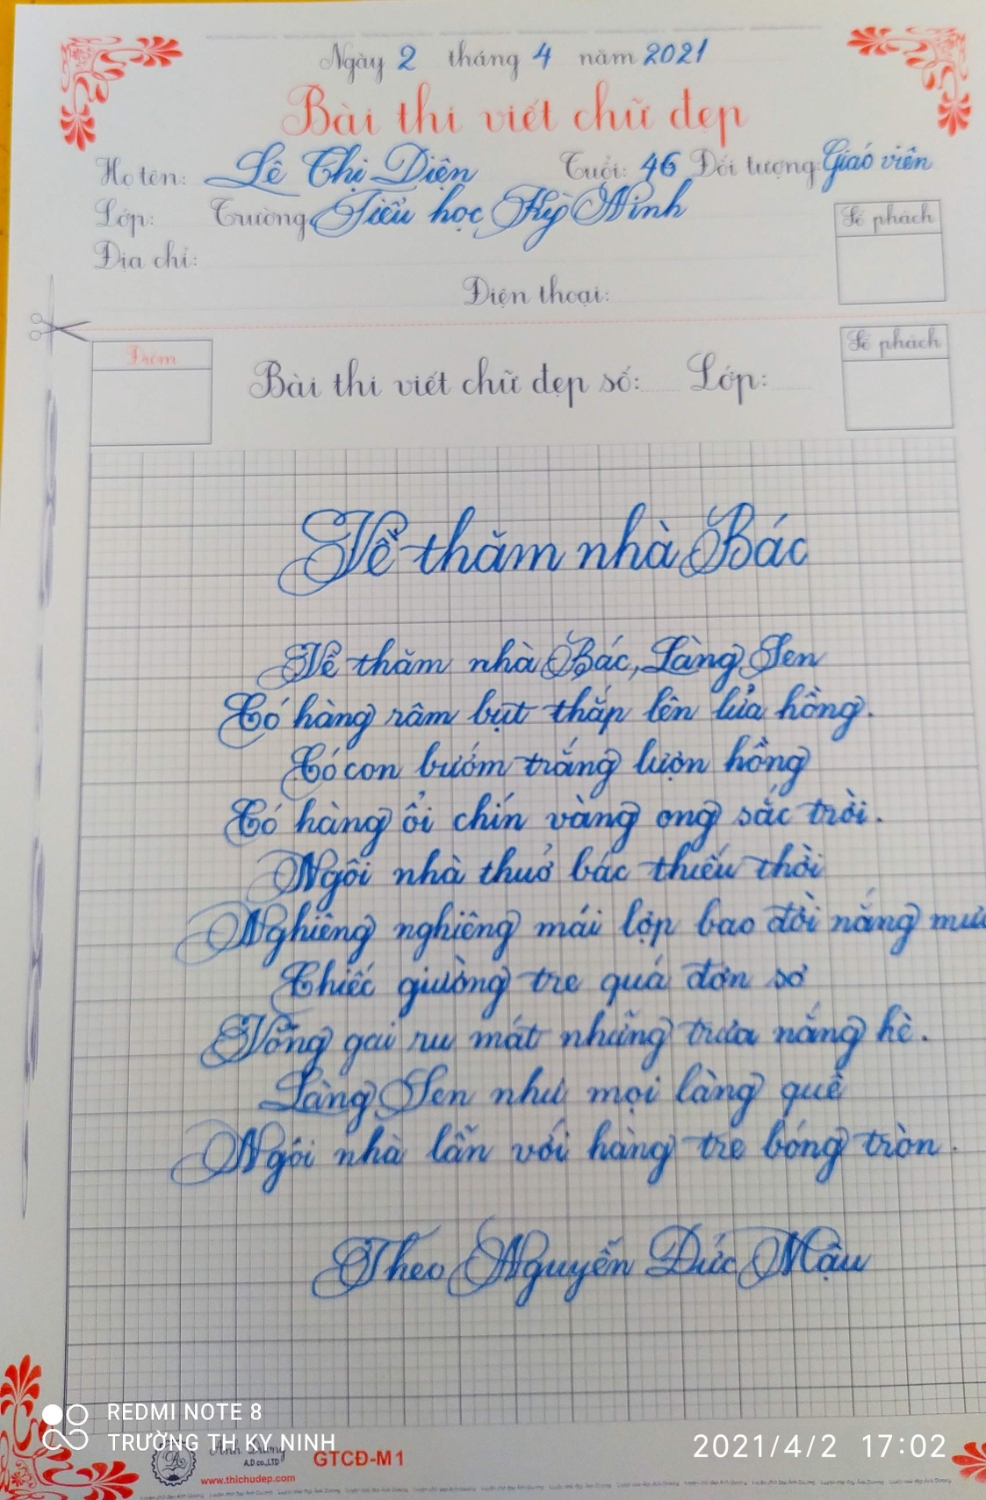 Ngày 2 tháng 4 năm 2021
Bài thi viết chữ đẹp
Họ tên: Lê Thị Diện Tuổi: 46 Đối tượng: Giáo viên
Lớp: Trường Tiểu học Kỳ Ninh
Địa chỉ:
Số phách
Điện thoại:
Điểm
Bài thi viết chữ đẹp số: Lớp:
Số phách
Về thăm nhà Bác
Về thăm nhà Bác, Làng Sen
Có hàng râm bụt thắp lên lửa hồng.
Có con bướm trắng lượn hồng
Có hàng ổi chín vàng ong sắc trời.
Ngôi nhà thuở bác thiếu thời
Nghiêng nghiêng mái lợp bao đời nắng mưa
Chiếc giường tre quá đơn sơ
Võng gai ru mát những trưa nắng hè.
Làng Sen như mọi làng quê
Ngôi nhà lẫn với hàng tre bóng tròn.
Theo Nguyễn Đức Mậu
REDMI NOTE 8
TRƯỜNG TH KY NINH
Ánh Dương
A.D co.,LTD
www.thichudep.com
GTCĐ-M1
2021/4/2 17:02